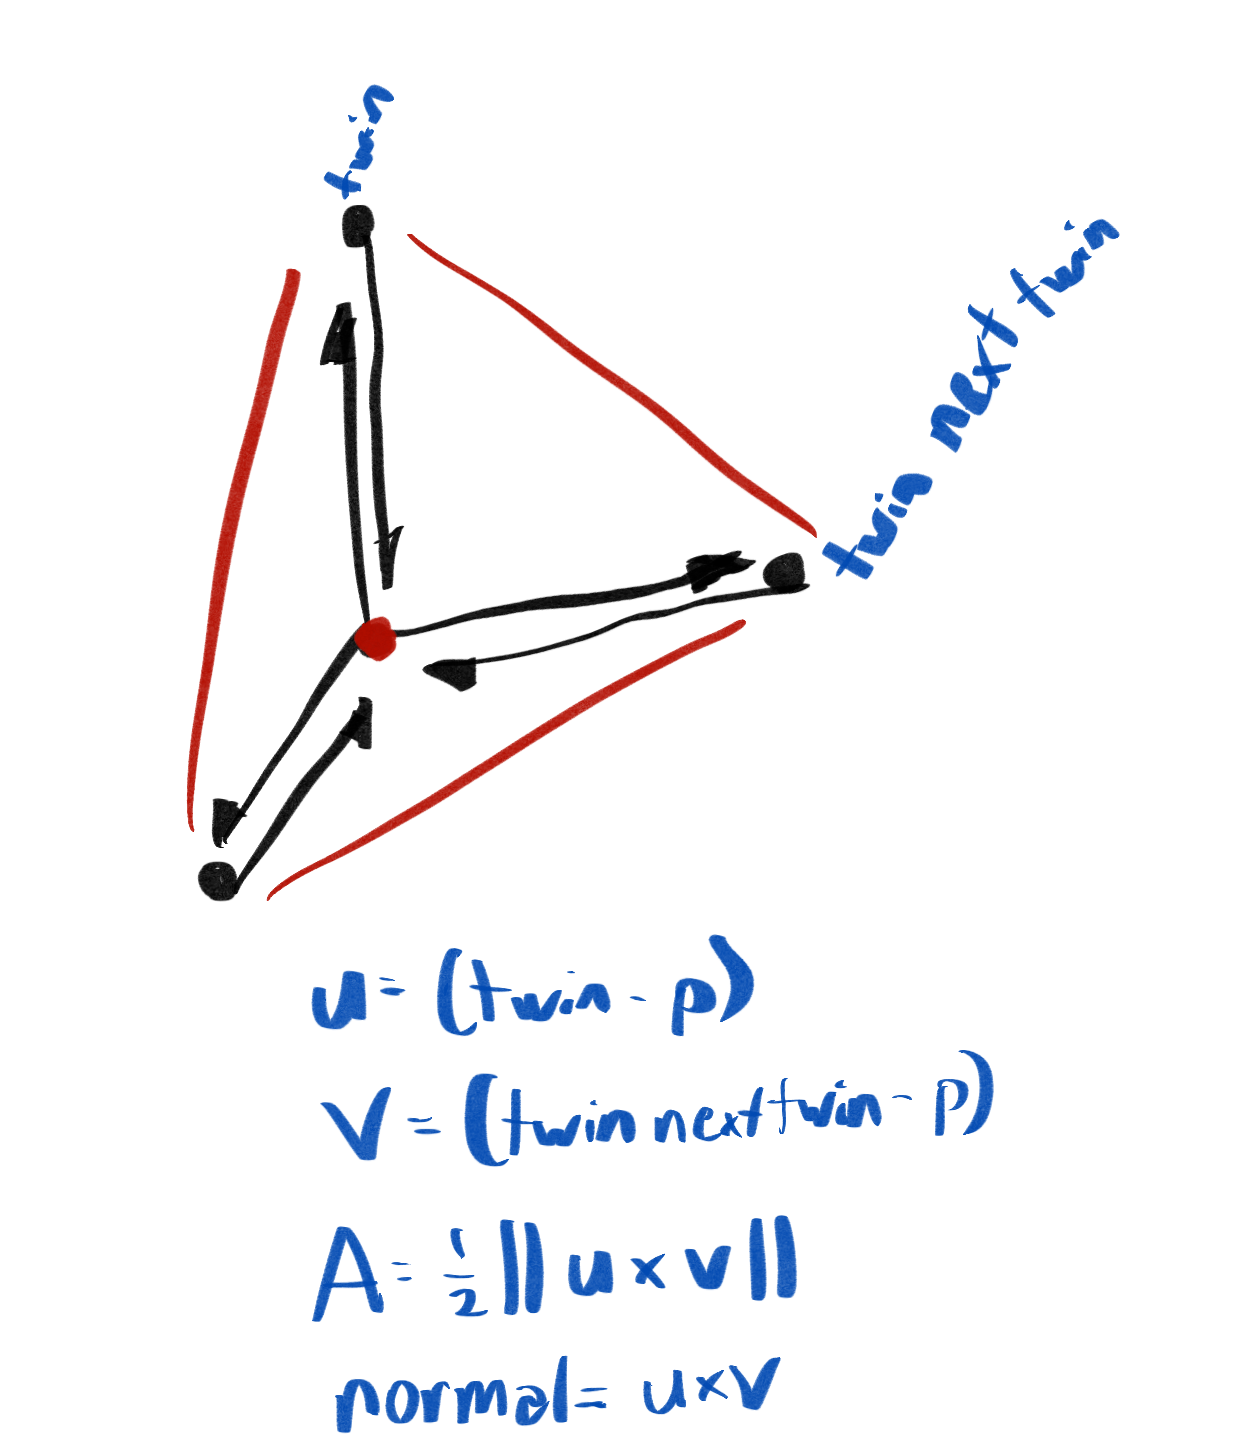 twin
twin next twin
u = (twin - p)
v = (twin next twin - p)
A = 1/2 || u × v ||
normal = u×v